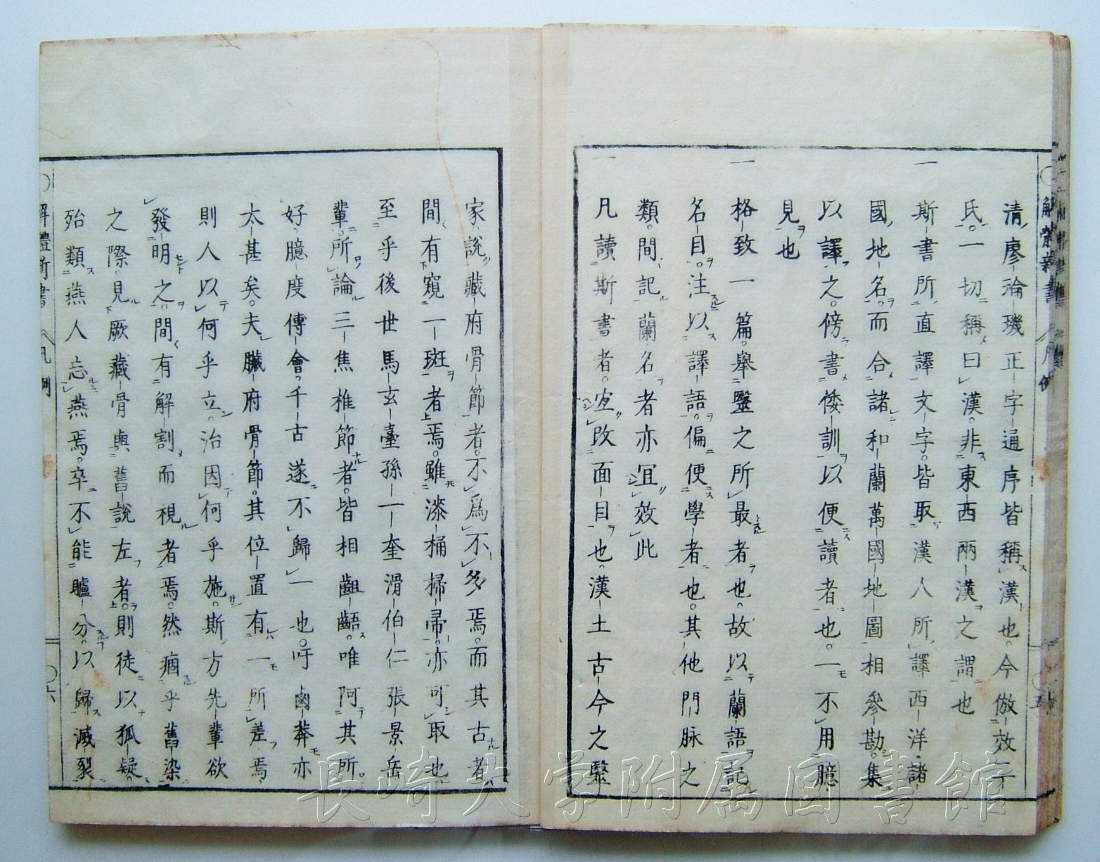 清廖淪璣正字通序皆稱漢也今倣效子
氏一切稱曰漢非東西兩漢之謂也
一斯書所直譯文字皆取漢人所譯西洋諸
國地名而合諸和蘭萬國地圖相參勘集
以譯之傍書倭訓以便讀者也一不用臆
見也
一格致一篇舉毉之所最者也故以蘭語記
名目注以譯語偏便學者也其他門脉之
類間記蘭名者亦冝效此
一凡讀斯書者冝改面目也漢土古今之毉
解體新書 凡例
家說藏府骨節者不爲不多焉而其古者
間有窺一斑者焉雖漆桶掃帚亦可取也
至乎後世馬玄臺孫一奎滑伯仁張景岳
輩所論三焦椎節者皆相齟齬唯阿其所
好臆度傳會千古遂不歸一也吁鹵莽亦
太甚矣夫臟府骨節其位置有一所差焉
則人以何乎立治因何乎施斯方先輩欲
發明之間有解割而視者焉然痼乎舊染
之際見厥藏骨與舊說左者則徒以狐疑
殆類燕人忘燕焉卒不能臚分以歸滅裂
解體新書 凡例 六
長崎大学附属図書館